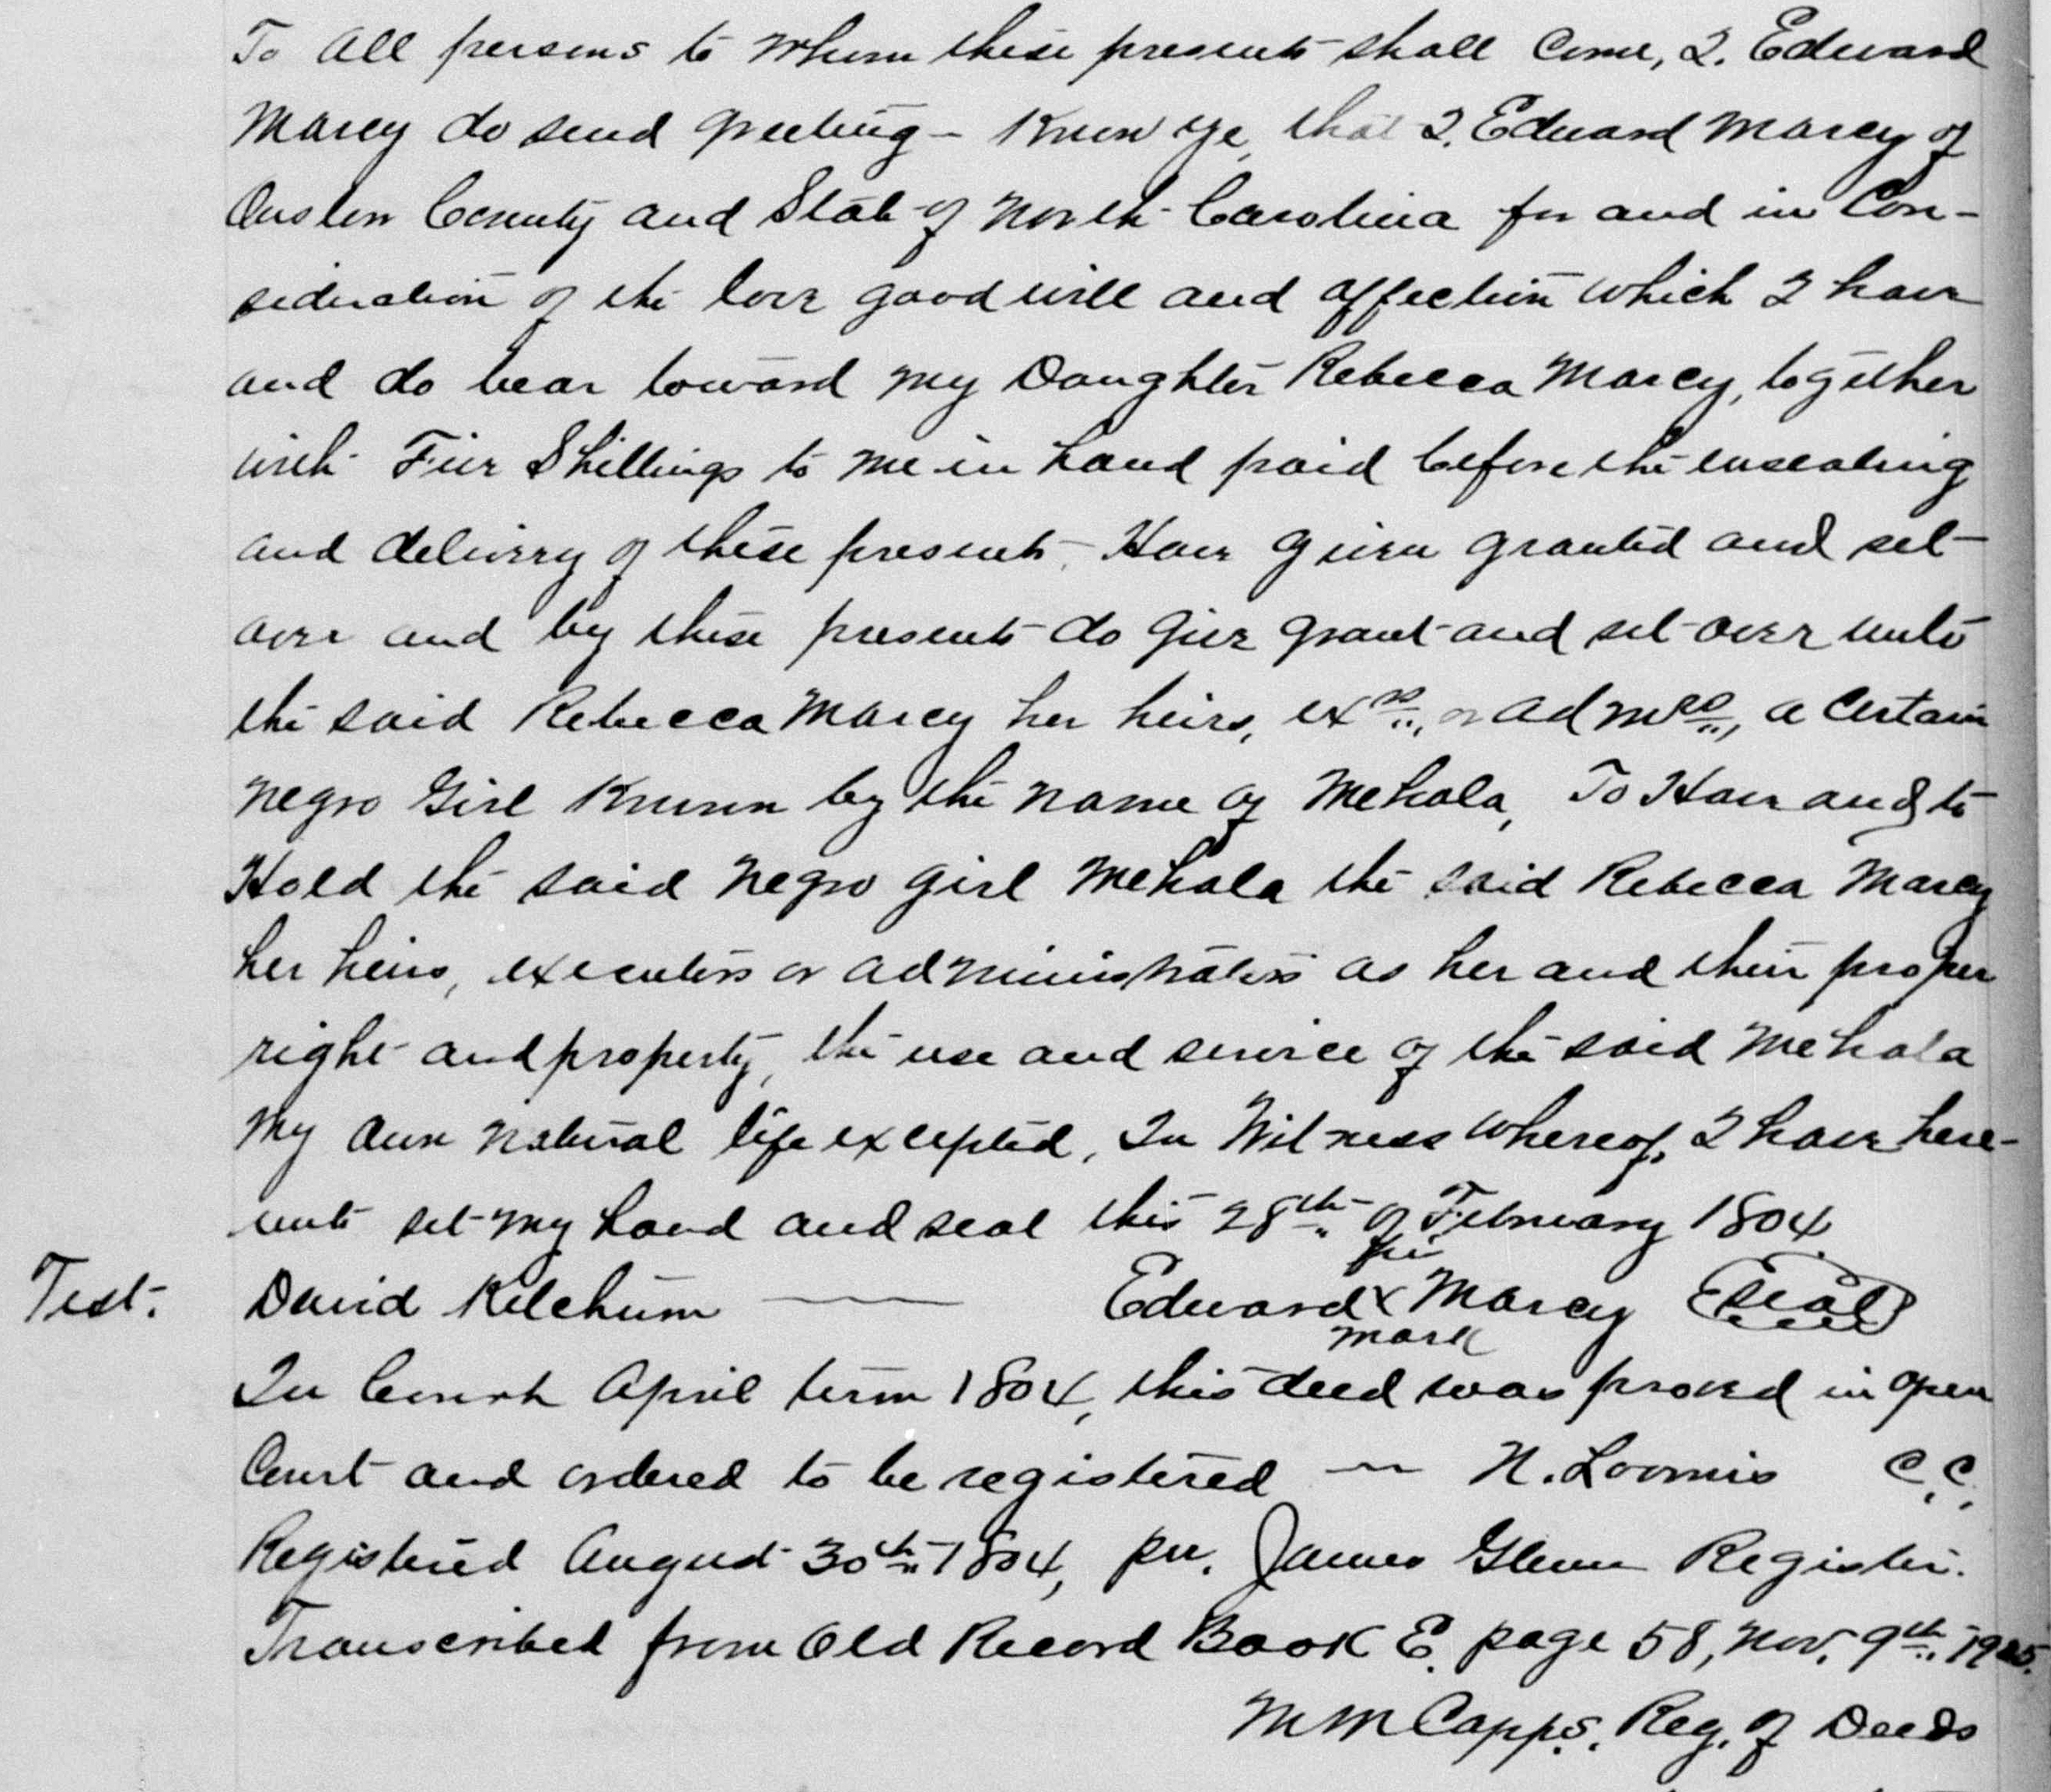 To all persons to whom these presents shall come, I. Edward
Marcy do send Greeting - Know ye, that I. Edward Marcy of
Onslow County and State of North Carolina for and in Con-
sideration of the love good will and affection which I have
and do bear toward my Daughter Rebecca Marcy, together
with Five Shillings to me in hand paid before the ensealing
and delivery of these presents - Have given granted and set
over and by these presents do give grant and set over unto
the said Rebecca Marcy her heirs, exrs., or admrs., a certain
negro Girl Known by the name of Mehala, To Have and to
Hold the said negro girl Mehala the said Rebecca Marcy
her heirs, executors or administrators as her and their proper
right and property, the use and service of the said Mehala
my own natural life excepted, In Witness whereof, I have here-
unto set my hand and seal this 28th of February 1804
his
Test. David Ketchum — Edward x Marcy (Seal)
mark
In Court April term 1804, this deed was proved in open
Court and ordered to be registered — N. Loomis C.C.
Registered August 30th 1804, per. James Glenn Register.
Transcribed from Old Record Book E. page 58, Nov. 9th
M M Capps. Reg. of Deeds